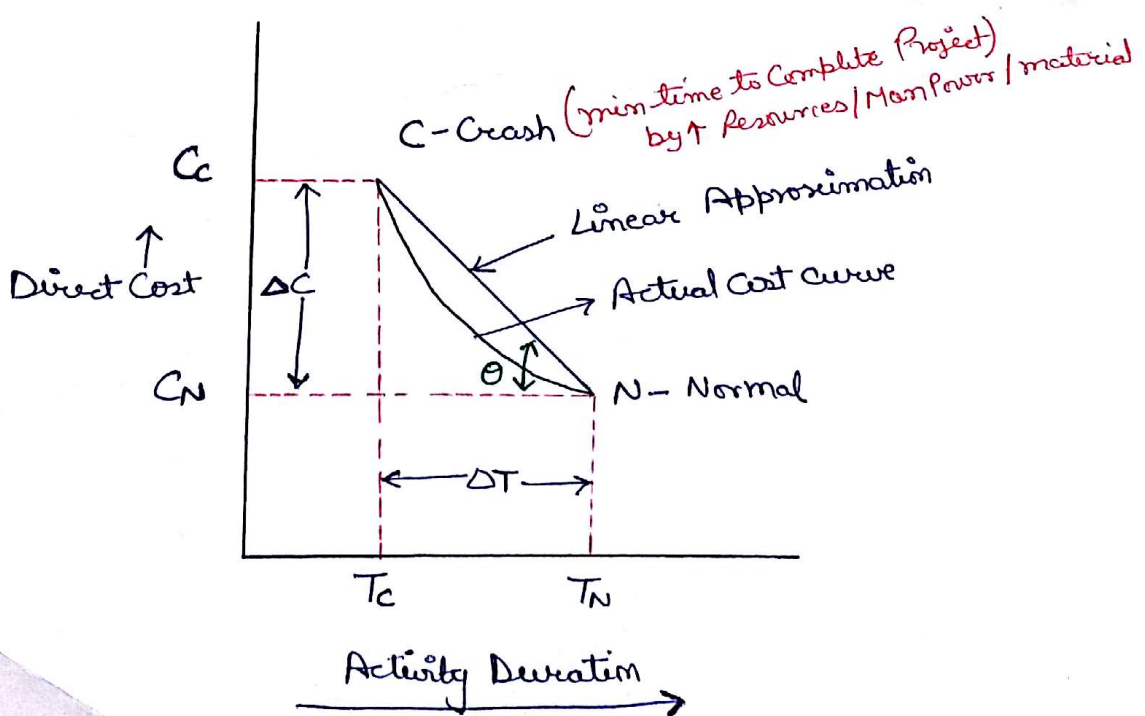 C-Crash (min time to Complete Project)
by↑ Resources/ManPower/material
Cc
Linear Approximation
↑
Direct Cost
ΔC
Actual Cost Curve
θ
CN
N- Normal
ΔT
Tc
TN
Activity Duration